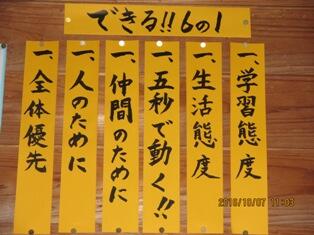 できる!!6の1
一、学習態度
一、生活態度
一、五秒で動く!!
一、仲間のために
一、人のために
一、全体優先
2016/10/07 11:03